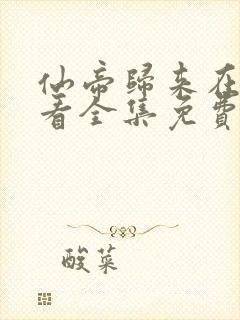 仙帝歸來在
看全集免費
酸菜